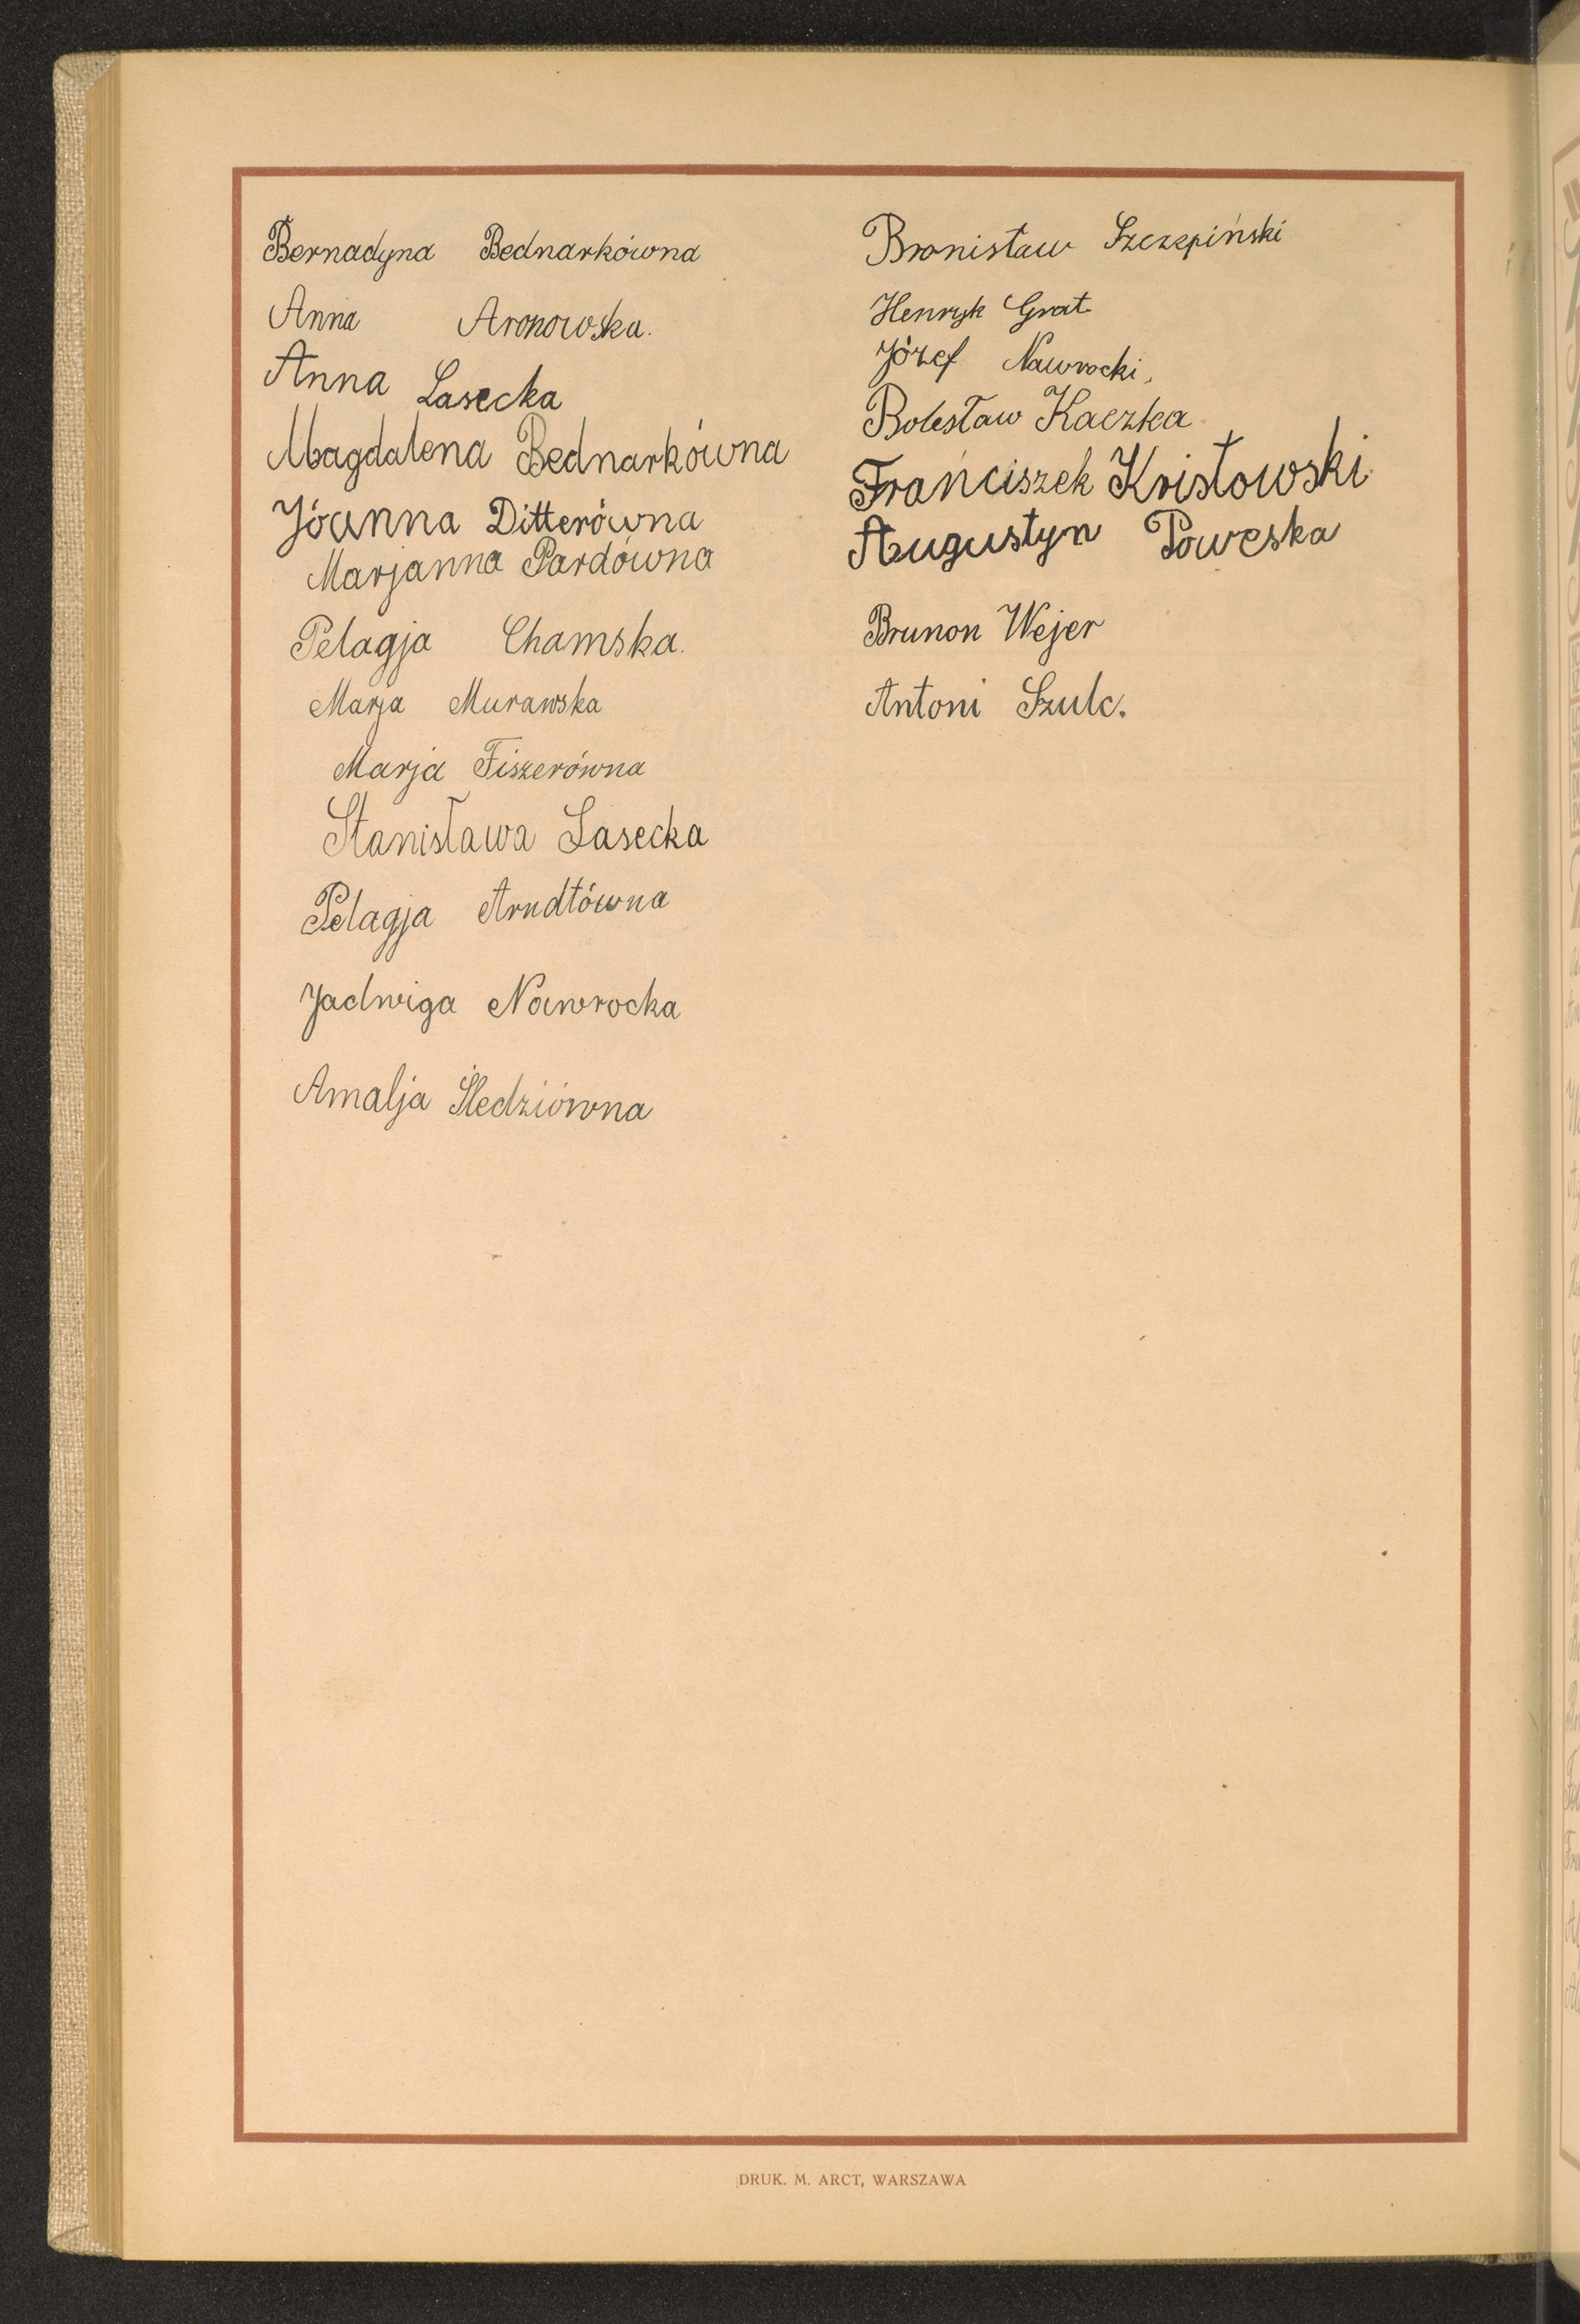 Bernadyna Bednarkówna
Anna Aronowska.
Anna Lasecka
Magdalena Bednarkówna
Jóanna Ditterówna
Marjanna Pardówna
Pelagja Chamska.
Marja Murawska
Marja Fiszerówna
Stanisława Lasecka
Pelagja Arndtówna
Jadwiga Nawrocka
Amalja Śledziówna
Bronisław Szczepiński
Henryk Grat
Józef Nawrocki,
Bolesław Kaczka
Frańciszek Kristowski
Augustyn Poweska
Brunon Wejer
Antoni Szulc.
DRUK. M. ARCT, WARSZAWA